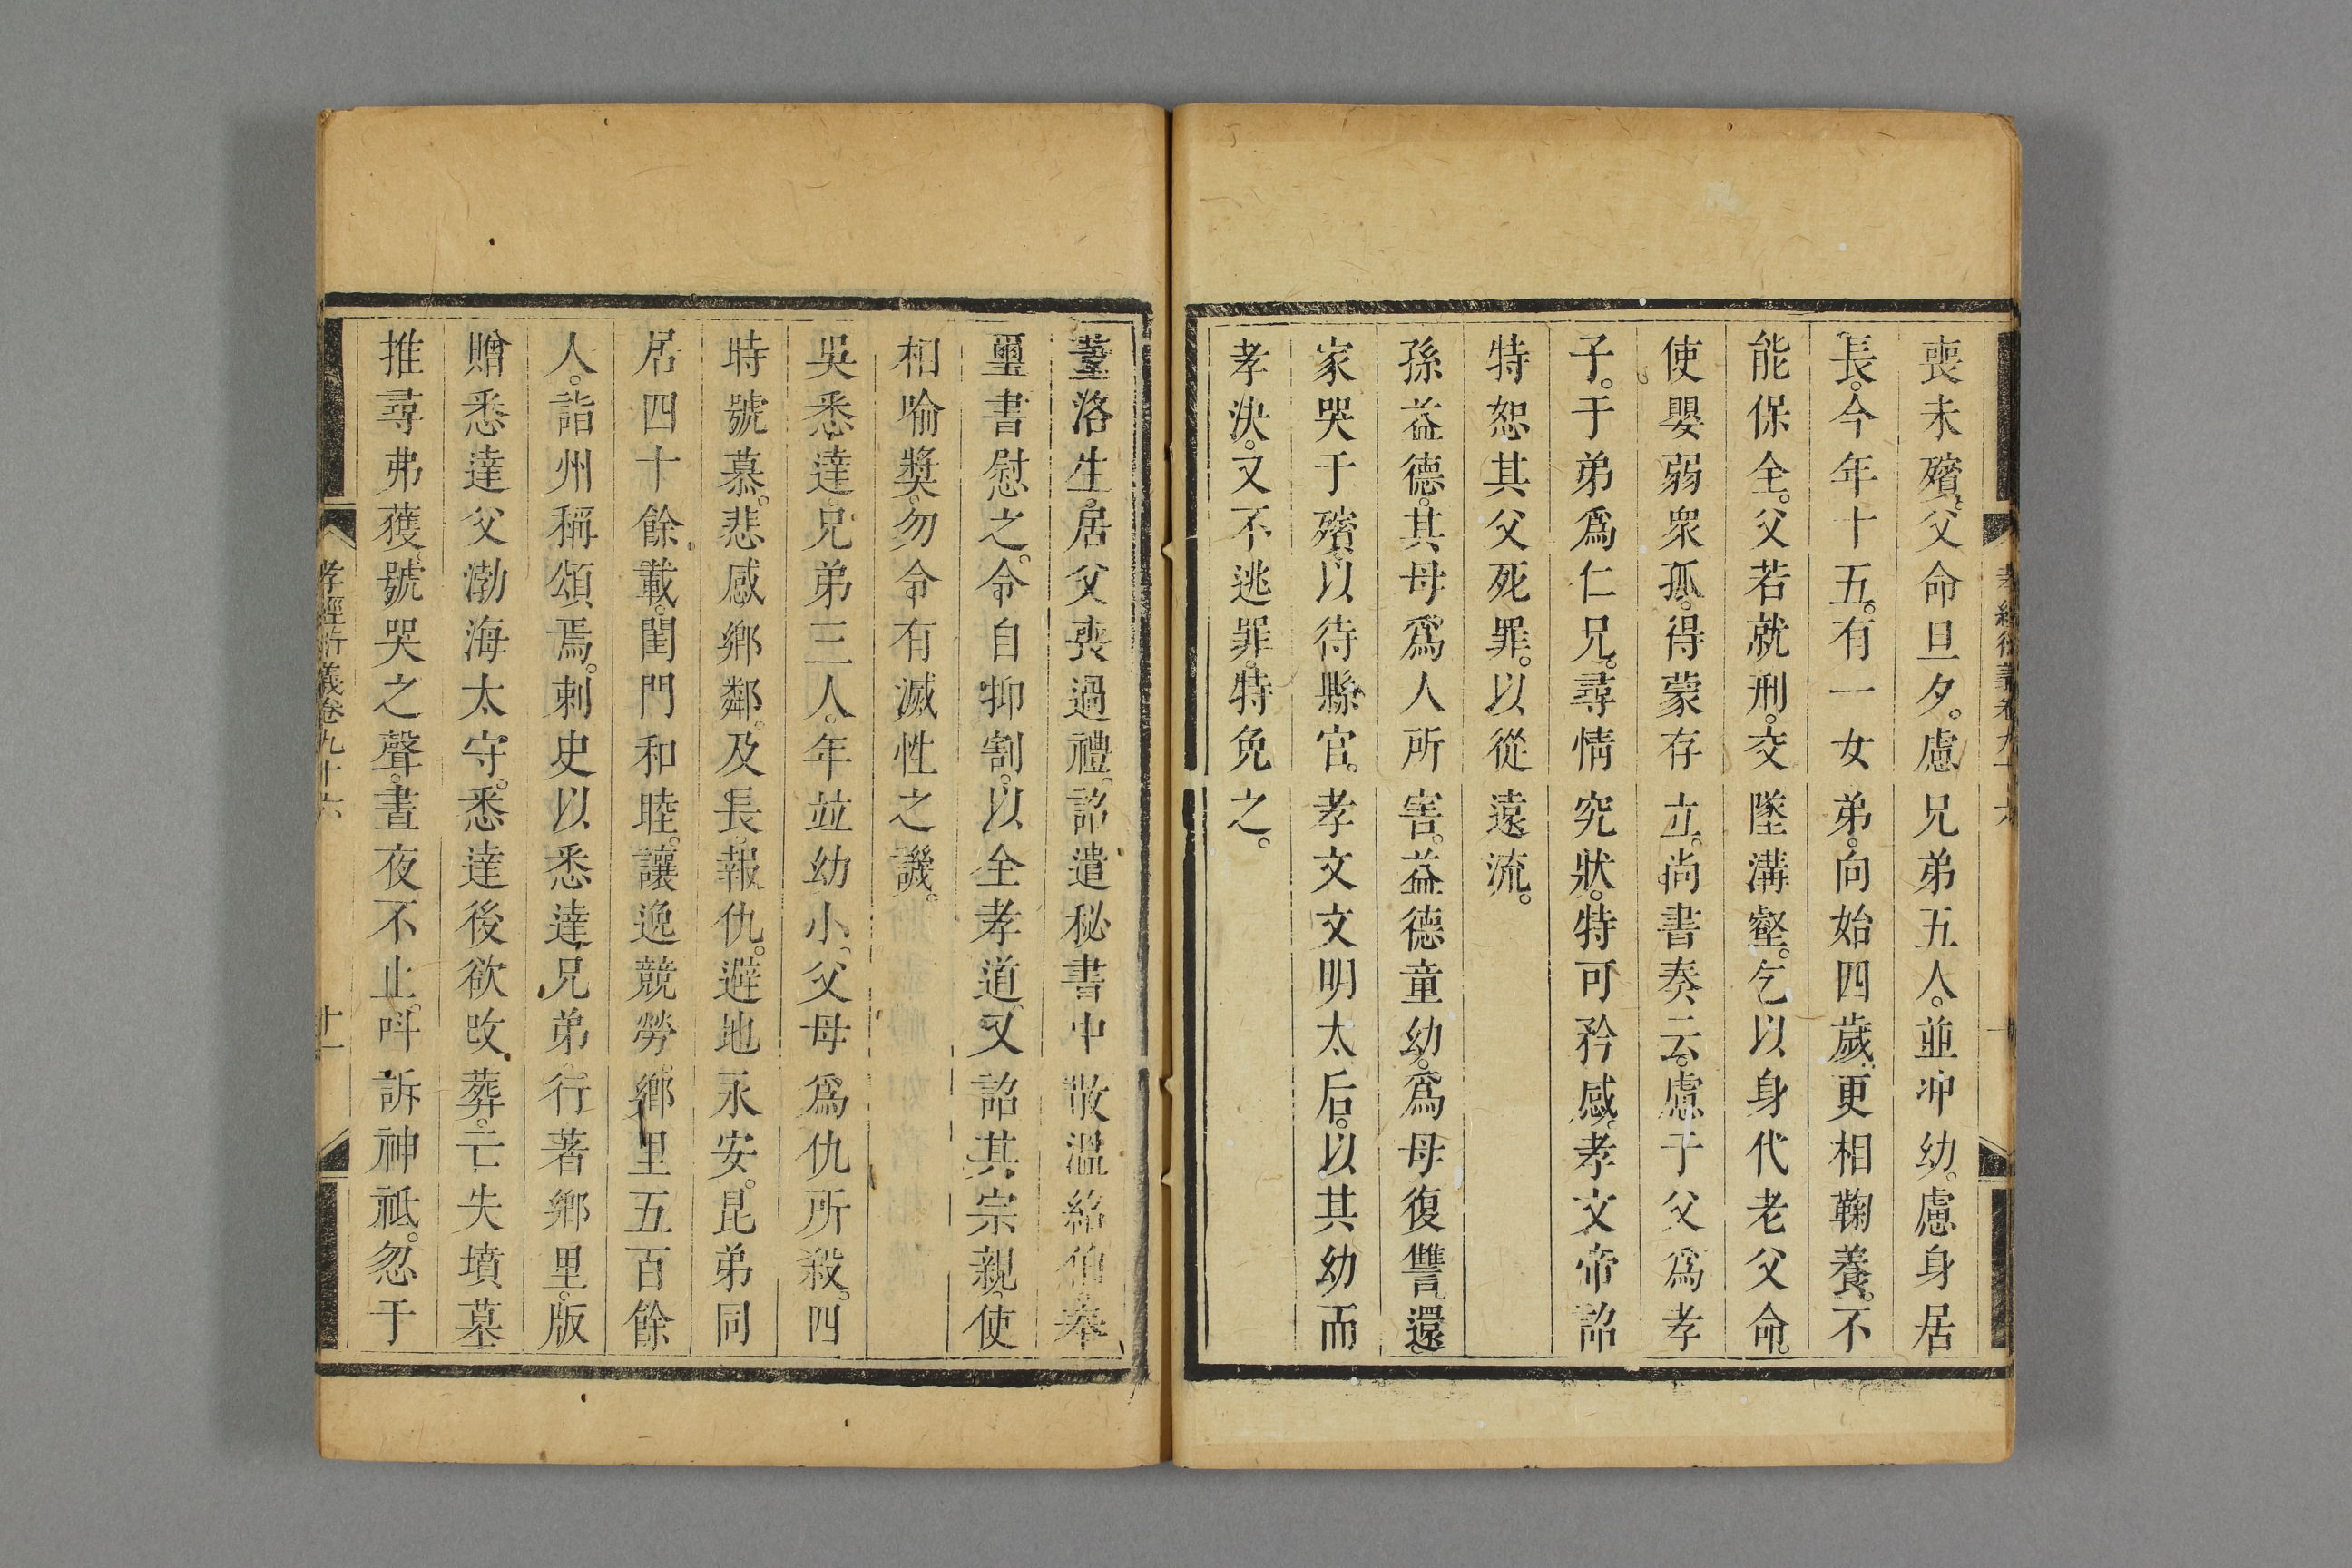 喪未殯。父命旦夕。慮兄弟五人。並沖幼。慮身居
長。今年十五。有一女弟。向始四歲。更相鞠養。不
能保全。父若就刑。交墜溝壑。乞以身代老父命。
使嬰弱衆孤。得蒙存立。尚書奏云。慮于父爲孝
子。于弟爲仁兄。尋情究狀。特可矜感。孝文帝詔
特恕其父死罪。以從遠流。
孫益德。其母爲人所害。益德童幼。爲母復讐。還
家哭于殯。以待縣官。孝文文明太后。以其幼而
孝決。又不逃罪。特免之。
董洛生。居父喪過禮。詔遣秘書中散溫紹伯。奉
璽書慰之。令自抑割。以全孝道。又詔其宗親。使
相喻獎。勿令有滅性之譏。
吳悉達。兄弟三人。年並幼小。父母爲仇所殺。四
時號慕。悲感鄉鄰。及長。報仇。避地永安。昆弟同
居四十餘載。閨門和睦。讓逸競勞。鄉里五百餘
人。詣州稱頌焉。刺史以悉達兄弟。行著鄉里。版
贈悉達父渤海太守。悉達後欲改葬。亡失墳墓
推尋弗獲。號哭之聲。晝夜不止。呌訴神祇。忽于
孝經衍義卷九十六
十一